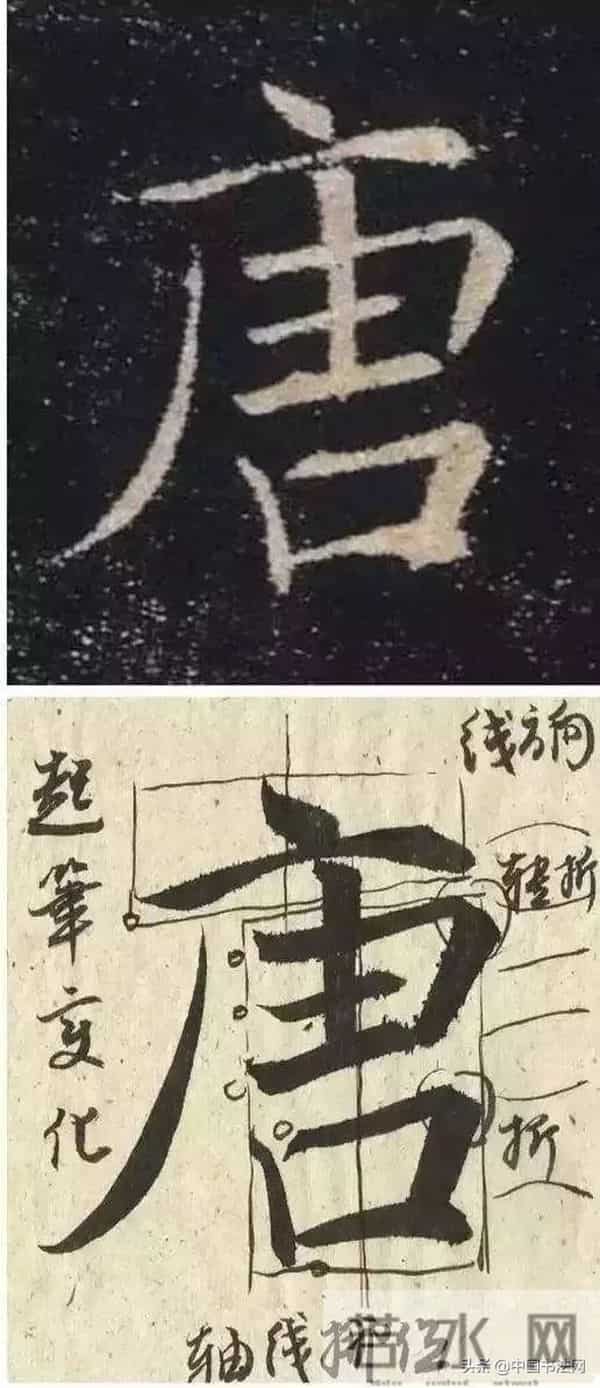 唐
线方向
起筆变化
唐
转折
折
轴线
水网
头条 @中国书法网